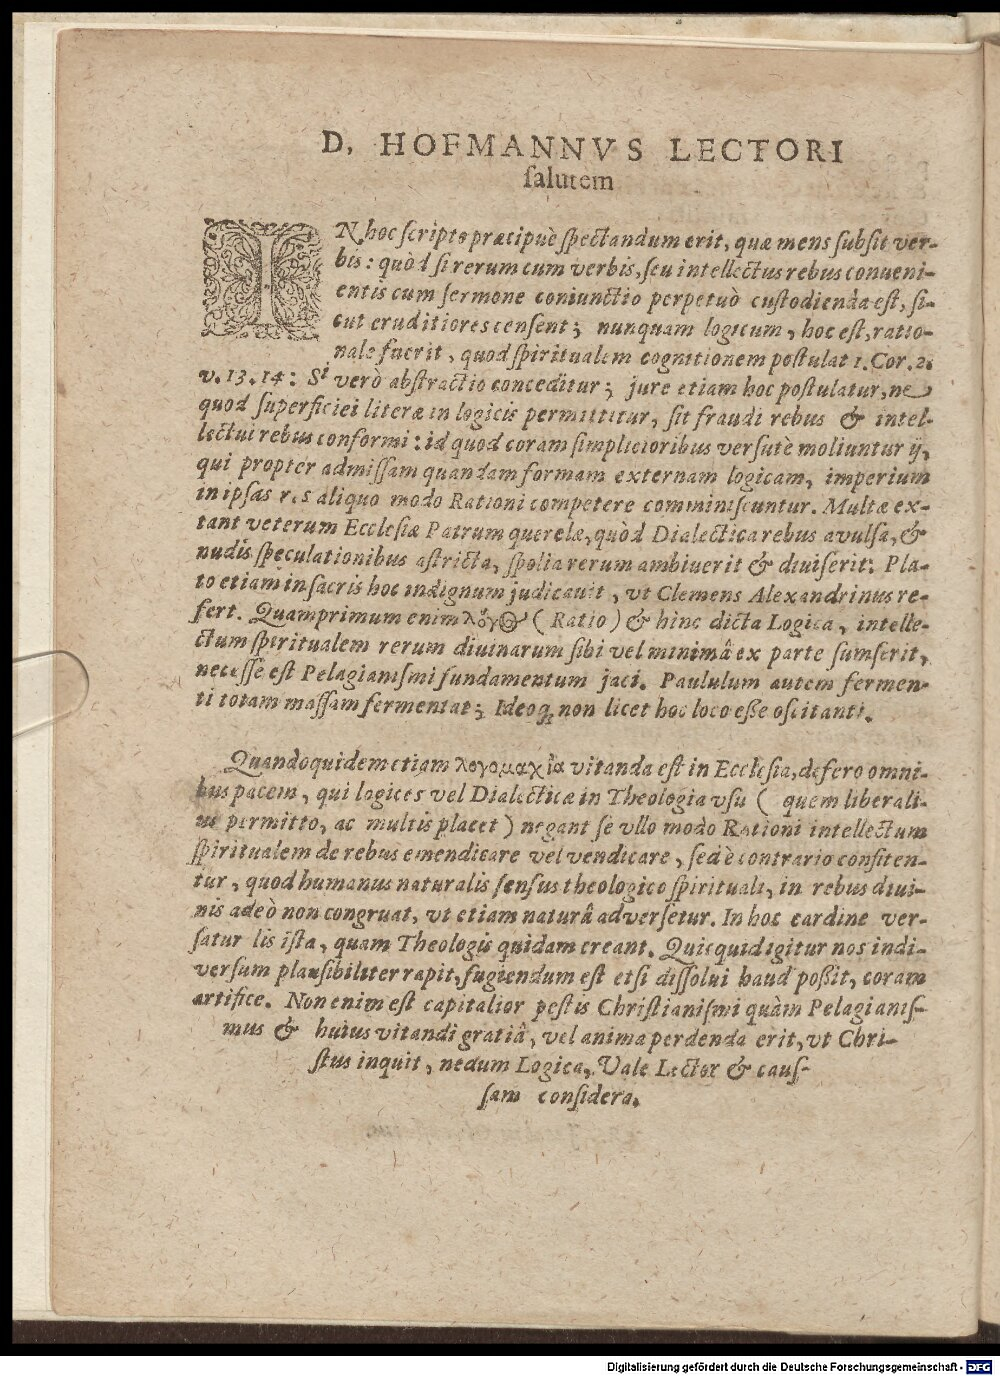 D. HOFMANNVS LECTORI
ſalutem
IN hoc ſcripto præcipuè ſpectandum erit, quæ mens ſubſit ver-
bis: quòd ſi rerum cum verbis, ſeu intellectus rebus conueni-
entis cum ſermone coniunctio perpetuò cuſtodienda eſt, ſi-
cut eruditiores cenſent; nunquam logicum, hoc eſt, ratio-
nale fuerit, quod ſpiritualem cognitionem poſtulat 1. Cor. 2.
v. 13. 14: Si verò abſtractio conceditur; jure etiam hoc poſtulatur, ne
quod ſuperficiei literæ in logicis permittitur, ſit fraudi rebus & intel-
lectui rebus conformi: id quod coram ſimplicioribus verſutè moliuntur ij,
qui propter admiſſam quandam formam externam logicam, imperium
in ipſas res aliquo modo Rationi competere comminiſcuntur. Multæ ex-
tant veterum Eccleſiæ Patrum querelæ, quòd Dialectica rebus avulſa, &
nudis ſpeculationibus aſtricta, ſpolia rerum ambiuerit & diuiſerit: Pla-
to etiam in ſacris hoc indignum judicauit, vt Clemens Alexandrinus re-
fert. Quamprimum enim λόγος (Ratio) & hinc dicta Logica, intelle-
ctum ſpiritualem rerum diuinarum ſibi vel minimâ ex parte ſumſerit,
neceſſe eſt Pelagianiſmi fundamentum jaci. Paululum autem fermen-
ti totam maſſam fermentat; Ideoq; non licet hoc loco eße oſcitanti.
Quandoquidem etiam λογομαχία vitanda eſt in Eccleſia, defero omni-
bus pacem, qui logices vel Dialecticæ in Theologia vſu ( quem liberali-
us permitto, ac multis placet ) negant ſe vllo modo Rationi intellectum
ſpiritualem de rebus emendicare vel vendicare, ſed è contrario confiten-
tur, quod humanus naturalis ſenſus theologico ſpirituali, in rebus diui-
nis adeò non congruat, vt etiam naturâ adverſetur. In hoc cardine ver-
ſatur lis iſta, quam Theologis quidam creant. Quicquid igitur nos in di-
verſum plauſibiliter rapit, fugiendum eſt etſi diſſolui haud poßit, coram
artifice. Non enim eſt capitalior peſtis Chriſtianiſmi quàm Pelagianiſ-
mus & huius vitandi gratiâ, vel anima perdenda erit, vt Chri-
ſtus inquit, nedum Logica. Vale Lector & cauſ-
ſam conſidera.
Digitalisierung gefördert durch die Deutsche Forschungsgemeinschaft - DFG